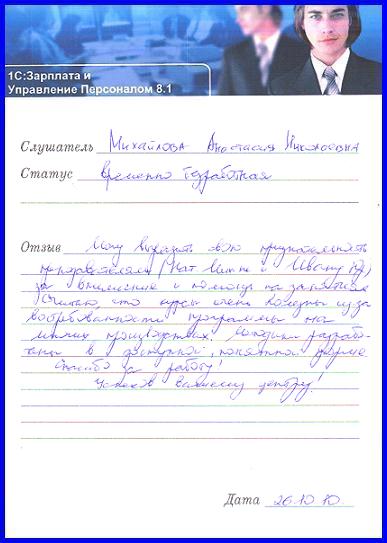 1С:Зарплата и
Управление Персоналом 8.1
Слушатель Михайлова Анастасия Николаевна
Статус временно безработная
Отзыв Хочу выразить свою признательность
преподавателям (Нат и Ивану
за внимание и помощь на занятиях
Считаю, что курсы очень полезны из за
востребованности программы на
многих предприятиях. разрабо-
таны в доступной, понятной форме
Спасибо за работу!
Успехов Вашему центру!
Дата 26.10.10.